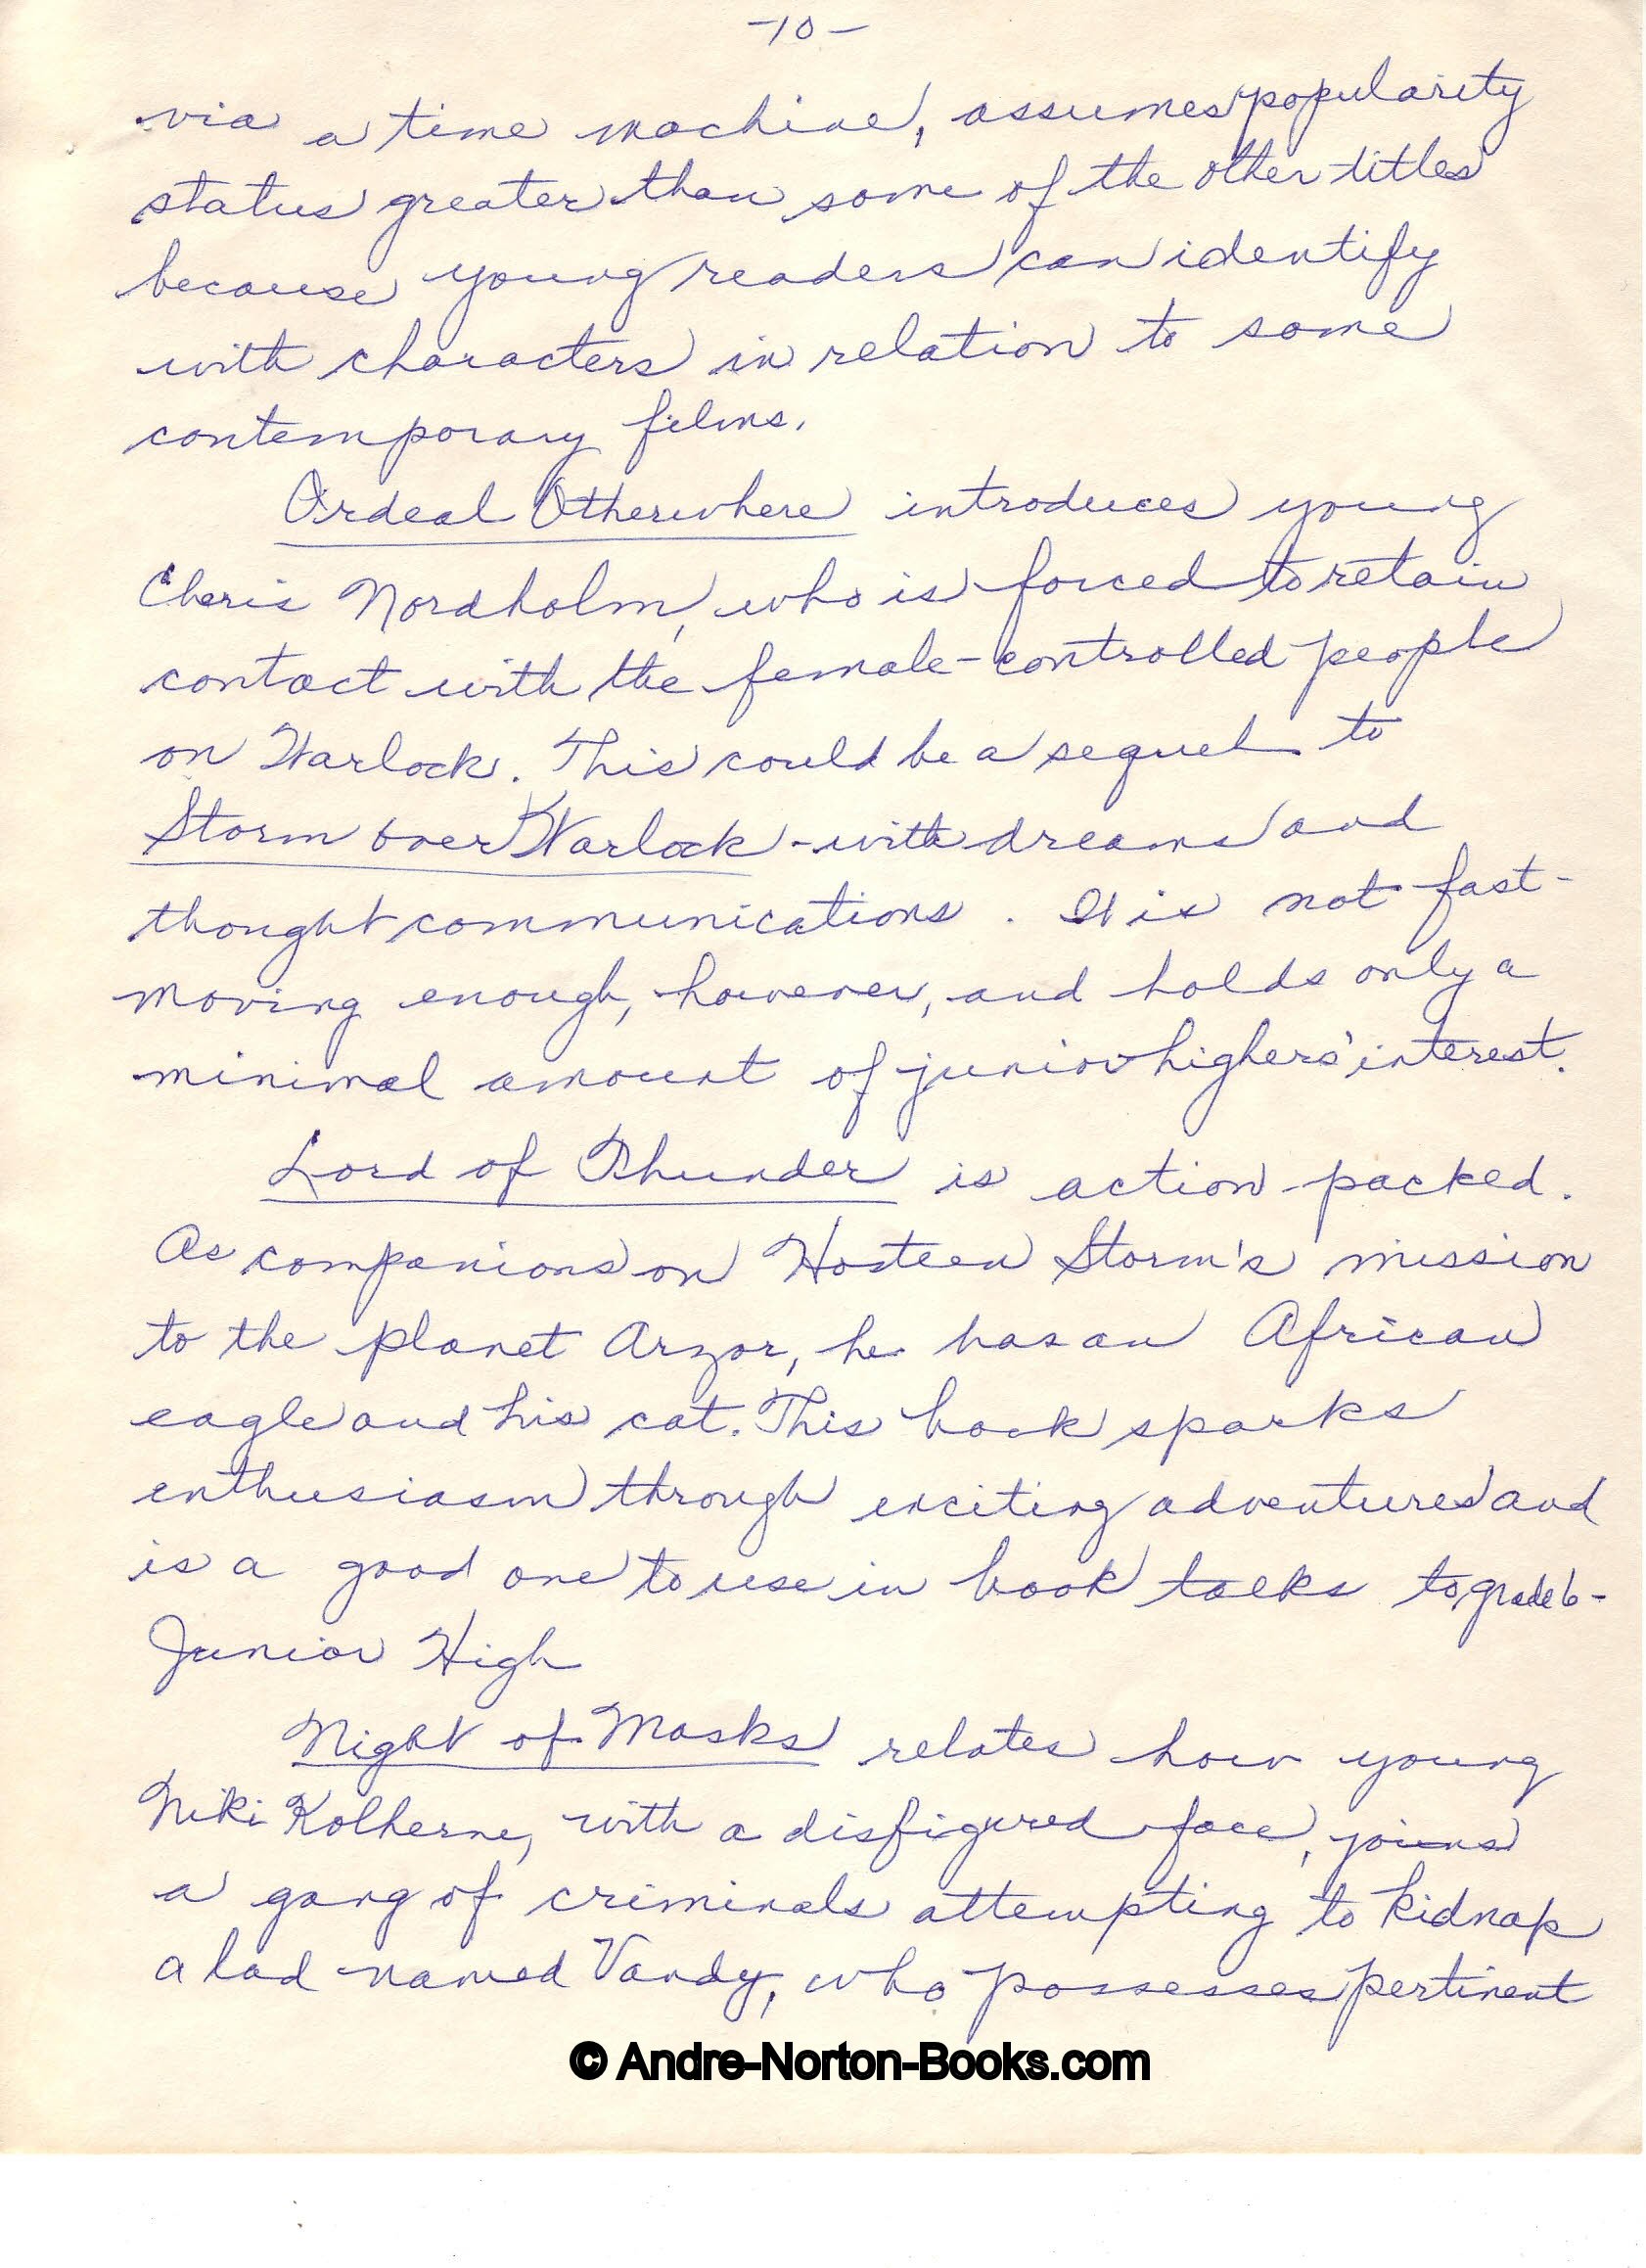 -10-
via a time machine, assumes popularity
status greater than some of the other titles
because young readers can identify
with characters in relation to some
contemporary films.
Ordeal Otherwhere introduces young
Cheris Nordholm, who is forced to retain
contact with the female-controlled people
on Warlock. This could be a sequel to
Storm over Warlock - with dreams and
thought communications. It is not fast-
moving enough, however, and holds only a
minimal amount of junior highers' interest.
Lord of Thunder is action packed.
As companions on Hosteen Storm's mission
to the planet Arzor, he has an African
eagle and his cat. This book sparks
enthusiasm through exciting adventures and
is a good one to use in book talks to grade 6-
Junior High
Night of Masks relates how young
Niki Kolherne, with a disfigured face, joins
a gang of criminals attempting to kidnap
a lad named Vandy, who possesses pertinent
© Andre-Norton-Books.com